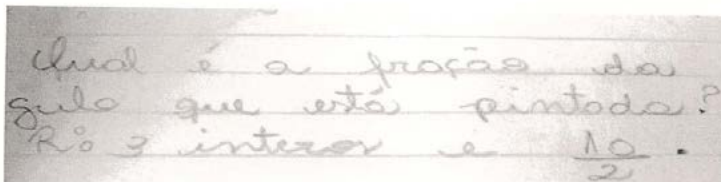 Qual é a fração da
gula que está pintada?
R: 3 interos e 10/2.